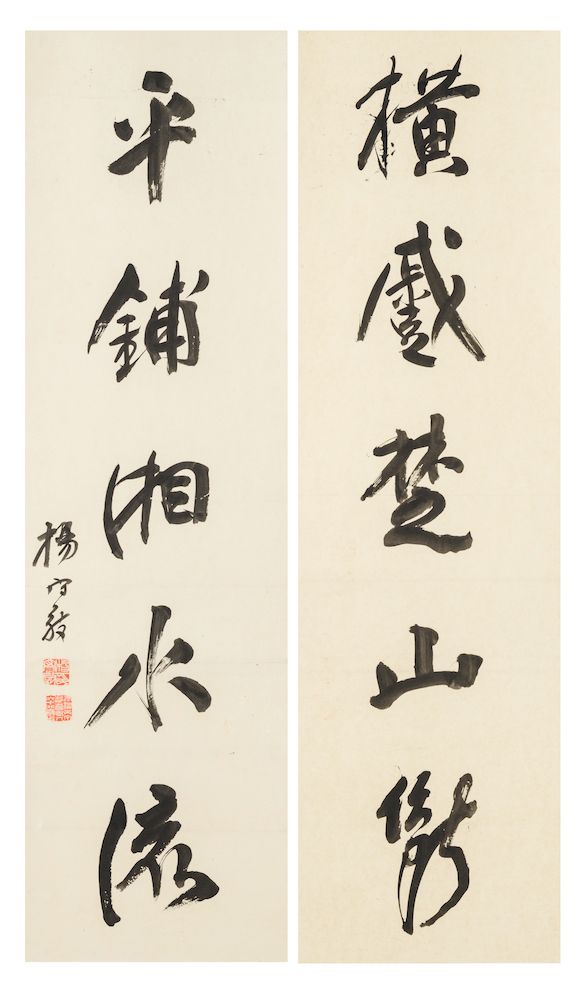 橫楚山
平鋪湘水流
楊守敬